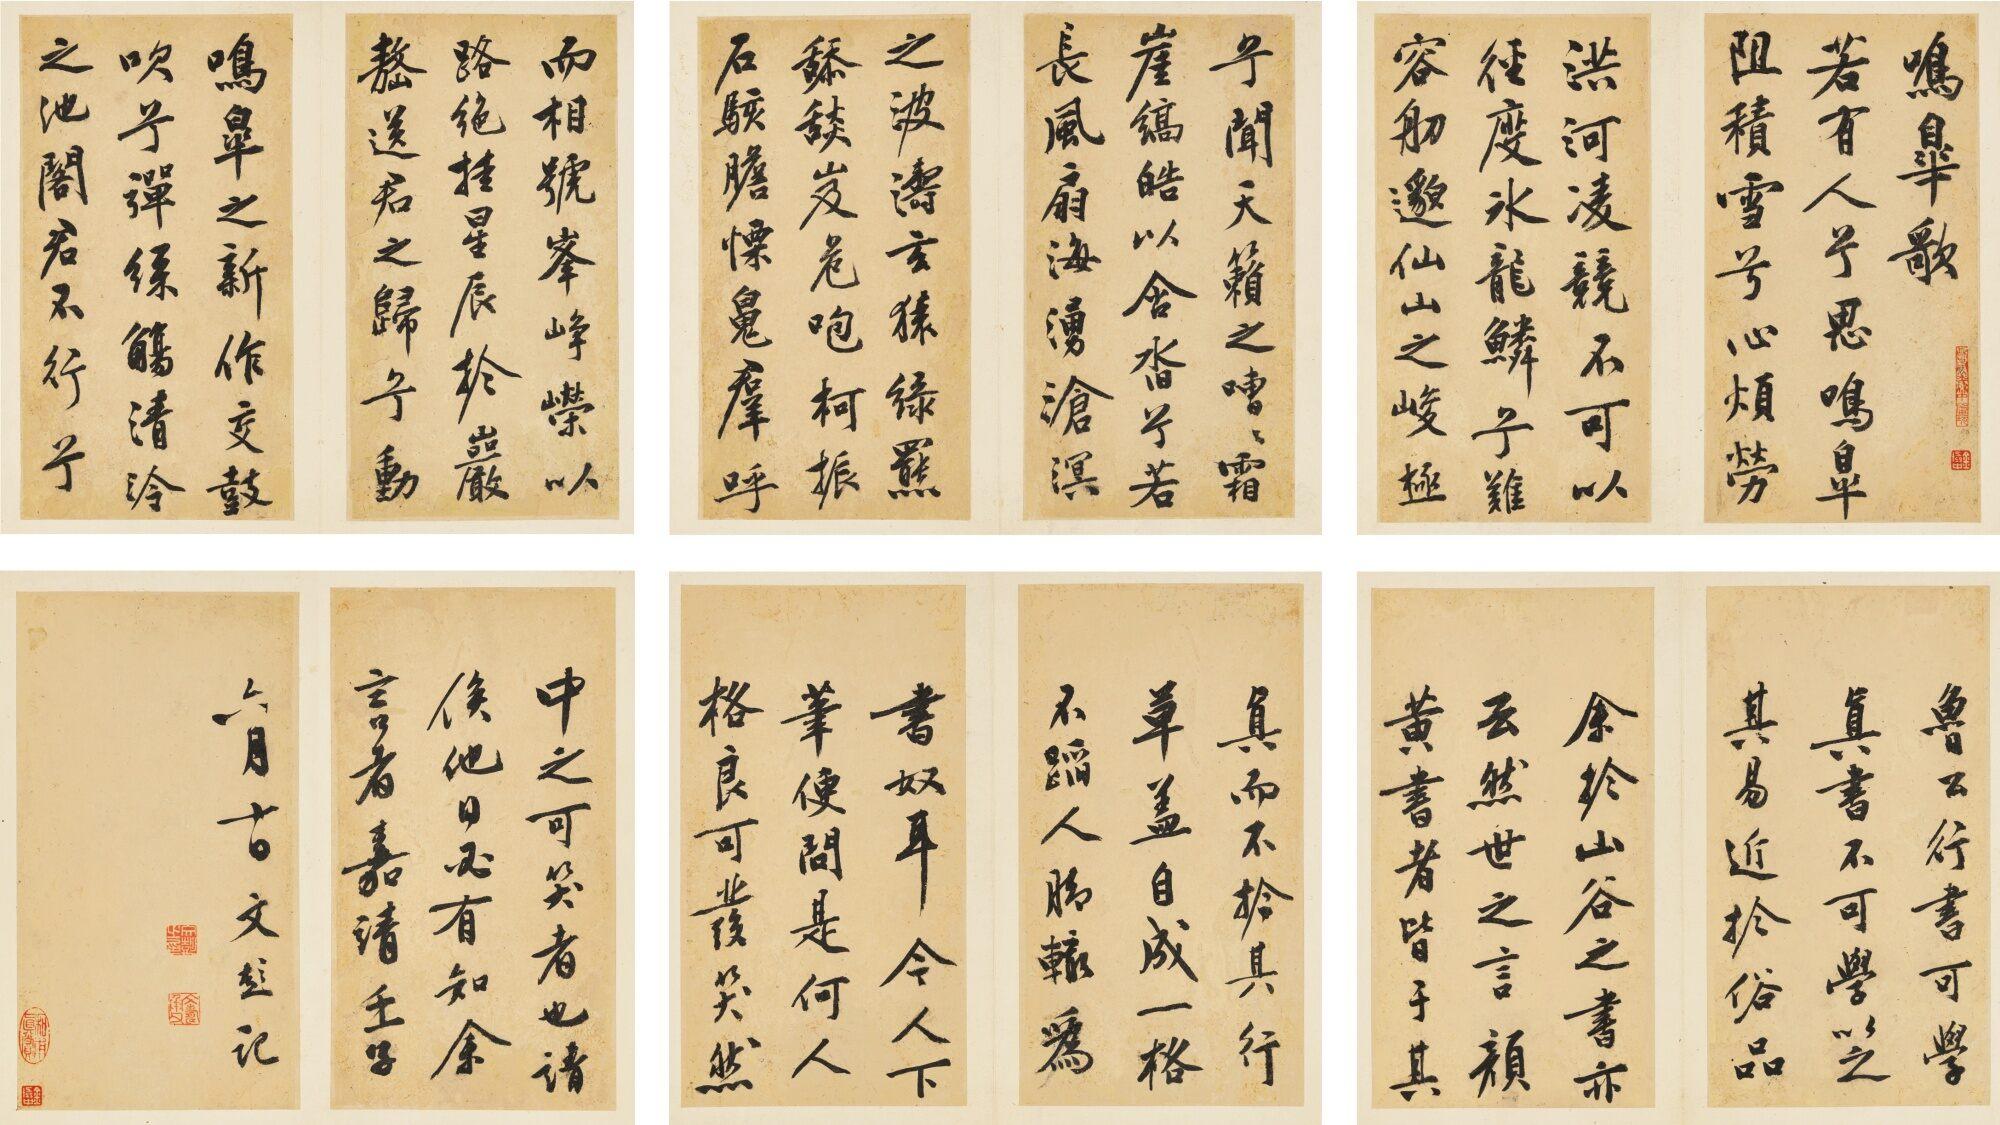 鳴皋歌
若有人兮思鳴皋
阻積雪兮心煩勞
洪河凌競不可以
徑度冰龍鱗兮難
容舠邈仙山之峻極
兮聞天籟之嘈〻霜
崖縞皓以合沓兮若
長風扇海湧滄溟
之波濤玄猿綠羆
舔舕岌危咆柯振
石駭膽慄魄群呼
而相號峯崢嶸以
路絶挂星辰於巖
嶅送君之歸兮動
鳴皋之新作交鼓
吹兮彈絲觴清泠
之池閣君不行兮
魯公行書可學
真書不可學以之
其易近於俗品
余於山谷之書亦
云然世之言顏
黃書者皆于其
真而不於其行
草蓋自成一格
不蹈人腳轍為
書奴耳今人下
筆便問是何人
格良可發笑然
中之可笑者也請
俟他日必有知余
言者嘉靖壬子
六月十日文彭記